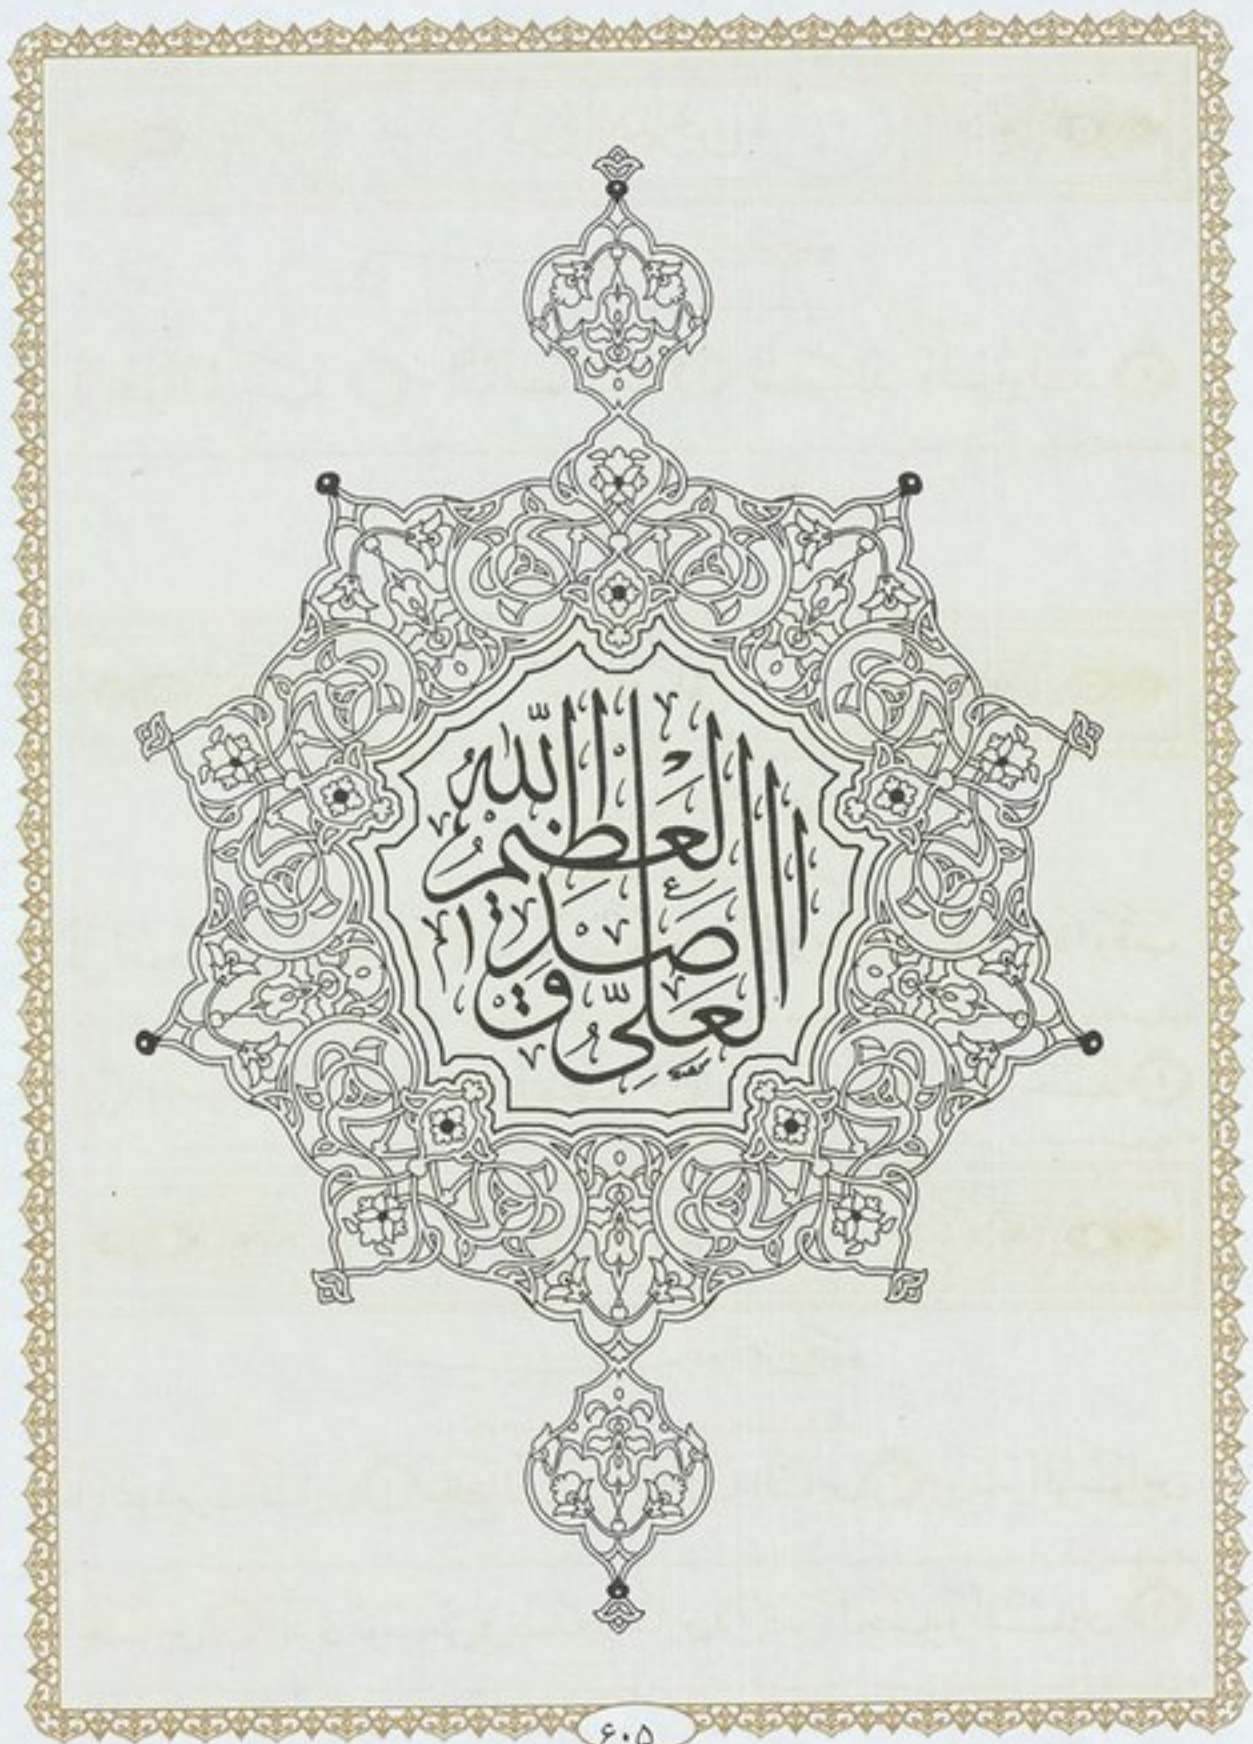 صَدَقَ اللهُ العَلِيُّ العَظِيمُ
۶۰۵